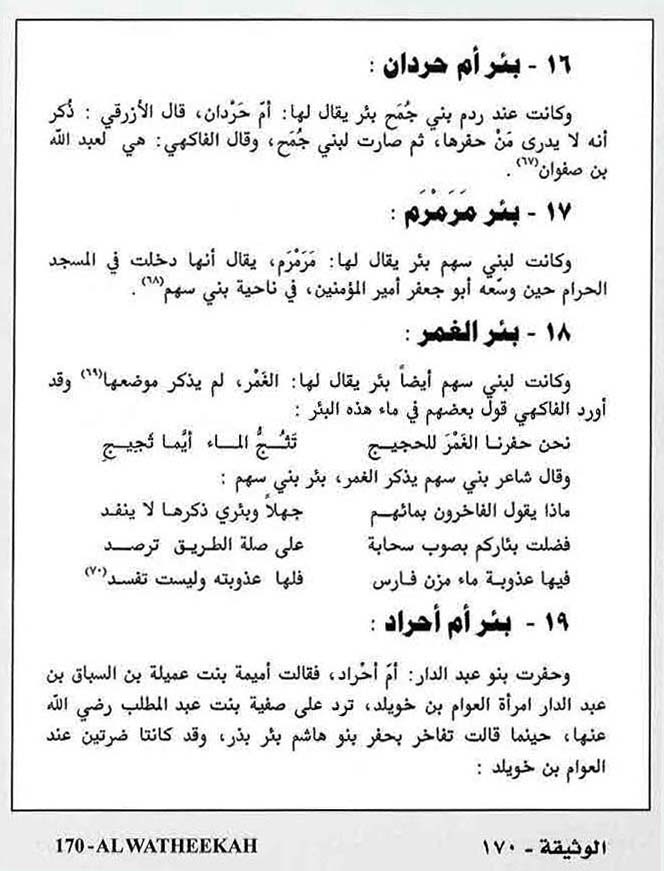 ١٦ - بئر أم حردان :
وكانت عند ردم بني جُمَح بئر يقال لها: أمّ حَرْدان، قال الأزرقي : ذُكر
أنه لا يدرى مَنْ حفرها، ثم صارت لبني جُمَح، وقال الفاكهي: هي لعبد الله
بن صفوان(٦٧) .
١٧ - بئر مَرَمْرَم :
وكانت لبني سهم بئر يقال لها: مَرَمْرَم، يقال أنها دخلت في المسجد
الحرام حين وسّعه أبو جعفر أمير المؤمنين، في ناحية بني سهم(٦٨) .
١٨ - بئر الغمر :
وكانت لبني سهم أيضاً بئر يقال لها: الغَمْر، لم يذكر موضعها(٦٩) وقد
أورد الفاكهي قول بعضهم في ماء هذه البئر :
نحن حفرنا الغَمْرَ للحجيج تَثُجُّ الماء أيَّما ثَجيجِ
وقال شاعر بني سهم يذكر الغمر، بئر بني سهم :
ماذا يقول الفاخرون بمائهم جهلاً وبئري ذكرها لا ينفد
فضلت بئاركم بصوب سحابة على صلة الطريق ترصد
فيها عذوبة ماء مزن فارس فلها عذوبته وليست تفسد(٧٠)
١٩ - بئر أم أحراد :
وحفرت بنو عبد الدار: أمّ أحْراد، فقالت أميمة بنت عميلة بن السباق بن
عبد الدار امرأة العوام بن خويلد، ترد على صفية بنت عبد المطلب رضي الله
عنها، حينما قالت تفاخر بحفر بنو هاشم بئر بذر، وقد كانتا ضرتين عند
العوام بن خويلد :
الوثيقة - ١٧٠
170-ALWATHEEKAH